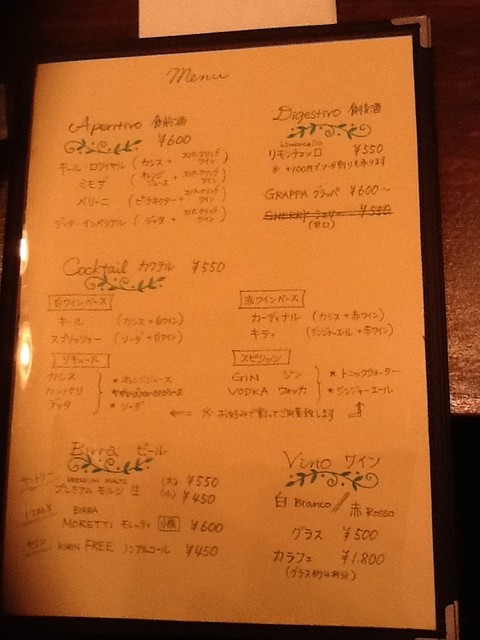 Menu
Aperitivo 食前酒
¥600
キール・ロワイヤル (カシス + スパークリングワイン)
ミモザ (オレンジジュース + スパークリングワイン)
ベリーニ (ピーチネクター + スパークリングワイン)
ディタ・インペリアル (ディタ + スパークリングワイン)
Digestivo 食後酒
Limoncello
リモンチェッロ ¥550
※ +100円でソーダ割りも承ります
GRAPPA グラッパ ¥600~
SHERRY シェリー ¥550
(甘口)
Cocktail カクテル ¥550
白ワインベース
キール (カシス + 白ワイン)
スプリッツァー (ソーダ + 白ワイン)
赤ワインベース
カーディナル (カシス + 赤ワイン)
キティ (ジンジャーエール + 赤ワイン)
リキュール
カシス
カンパリ
ディタ
★ オレンジジュース
★ ソーダ
スピリッツ
GIN ジン
VODKA ウォッカ
★ トニックウォーター
★ ジンジャーエール
← ※ お好みで割ってご用意致します
Birra ビール
サントリー PREMIUM MALTS
プレミアム モルツ 生 (大) ¥550
(小) ¥450
ITALY BIRRA
MORETTI モレッティ 小瓶 ¥600
キリン KIRIN FREE ノンアルコール ¥450
Vino ワイン
白 Bianco / 赤 Rosso
グラス ¥500
カラフェ ¥1,800
(グラス約4杯分)